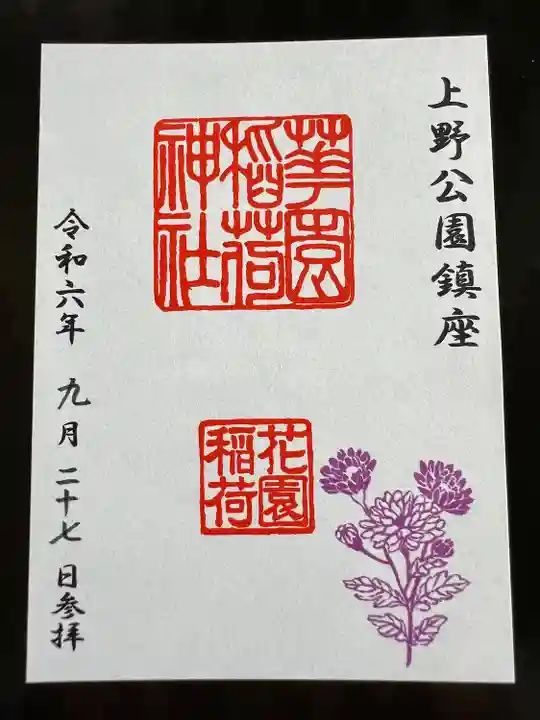 上野公園鎮座
華園
稲荷
神社
花園
稲荷
令和六年 九月 二十七 日参拝